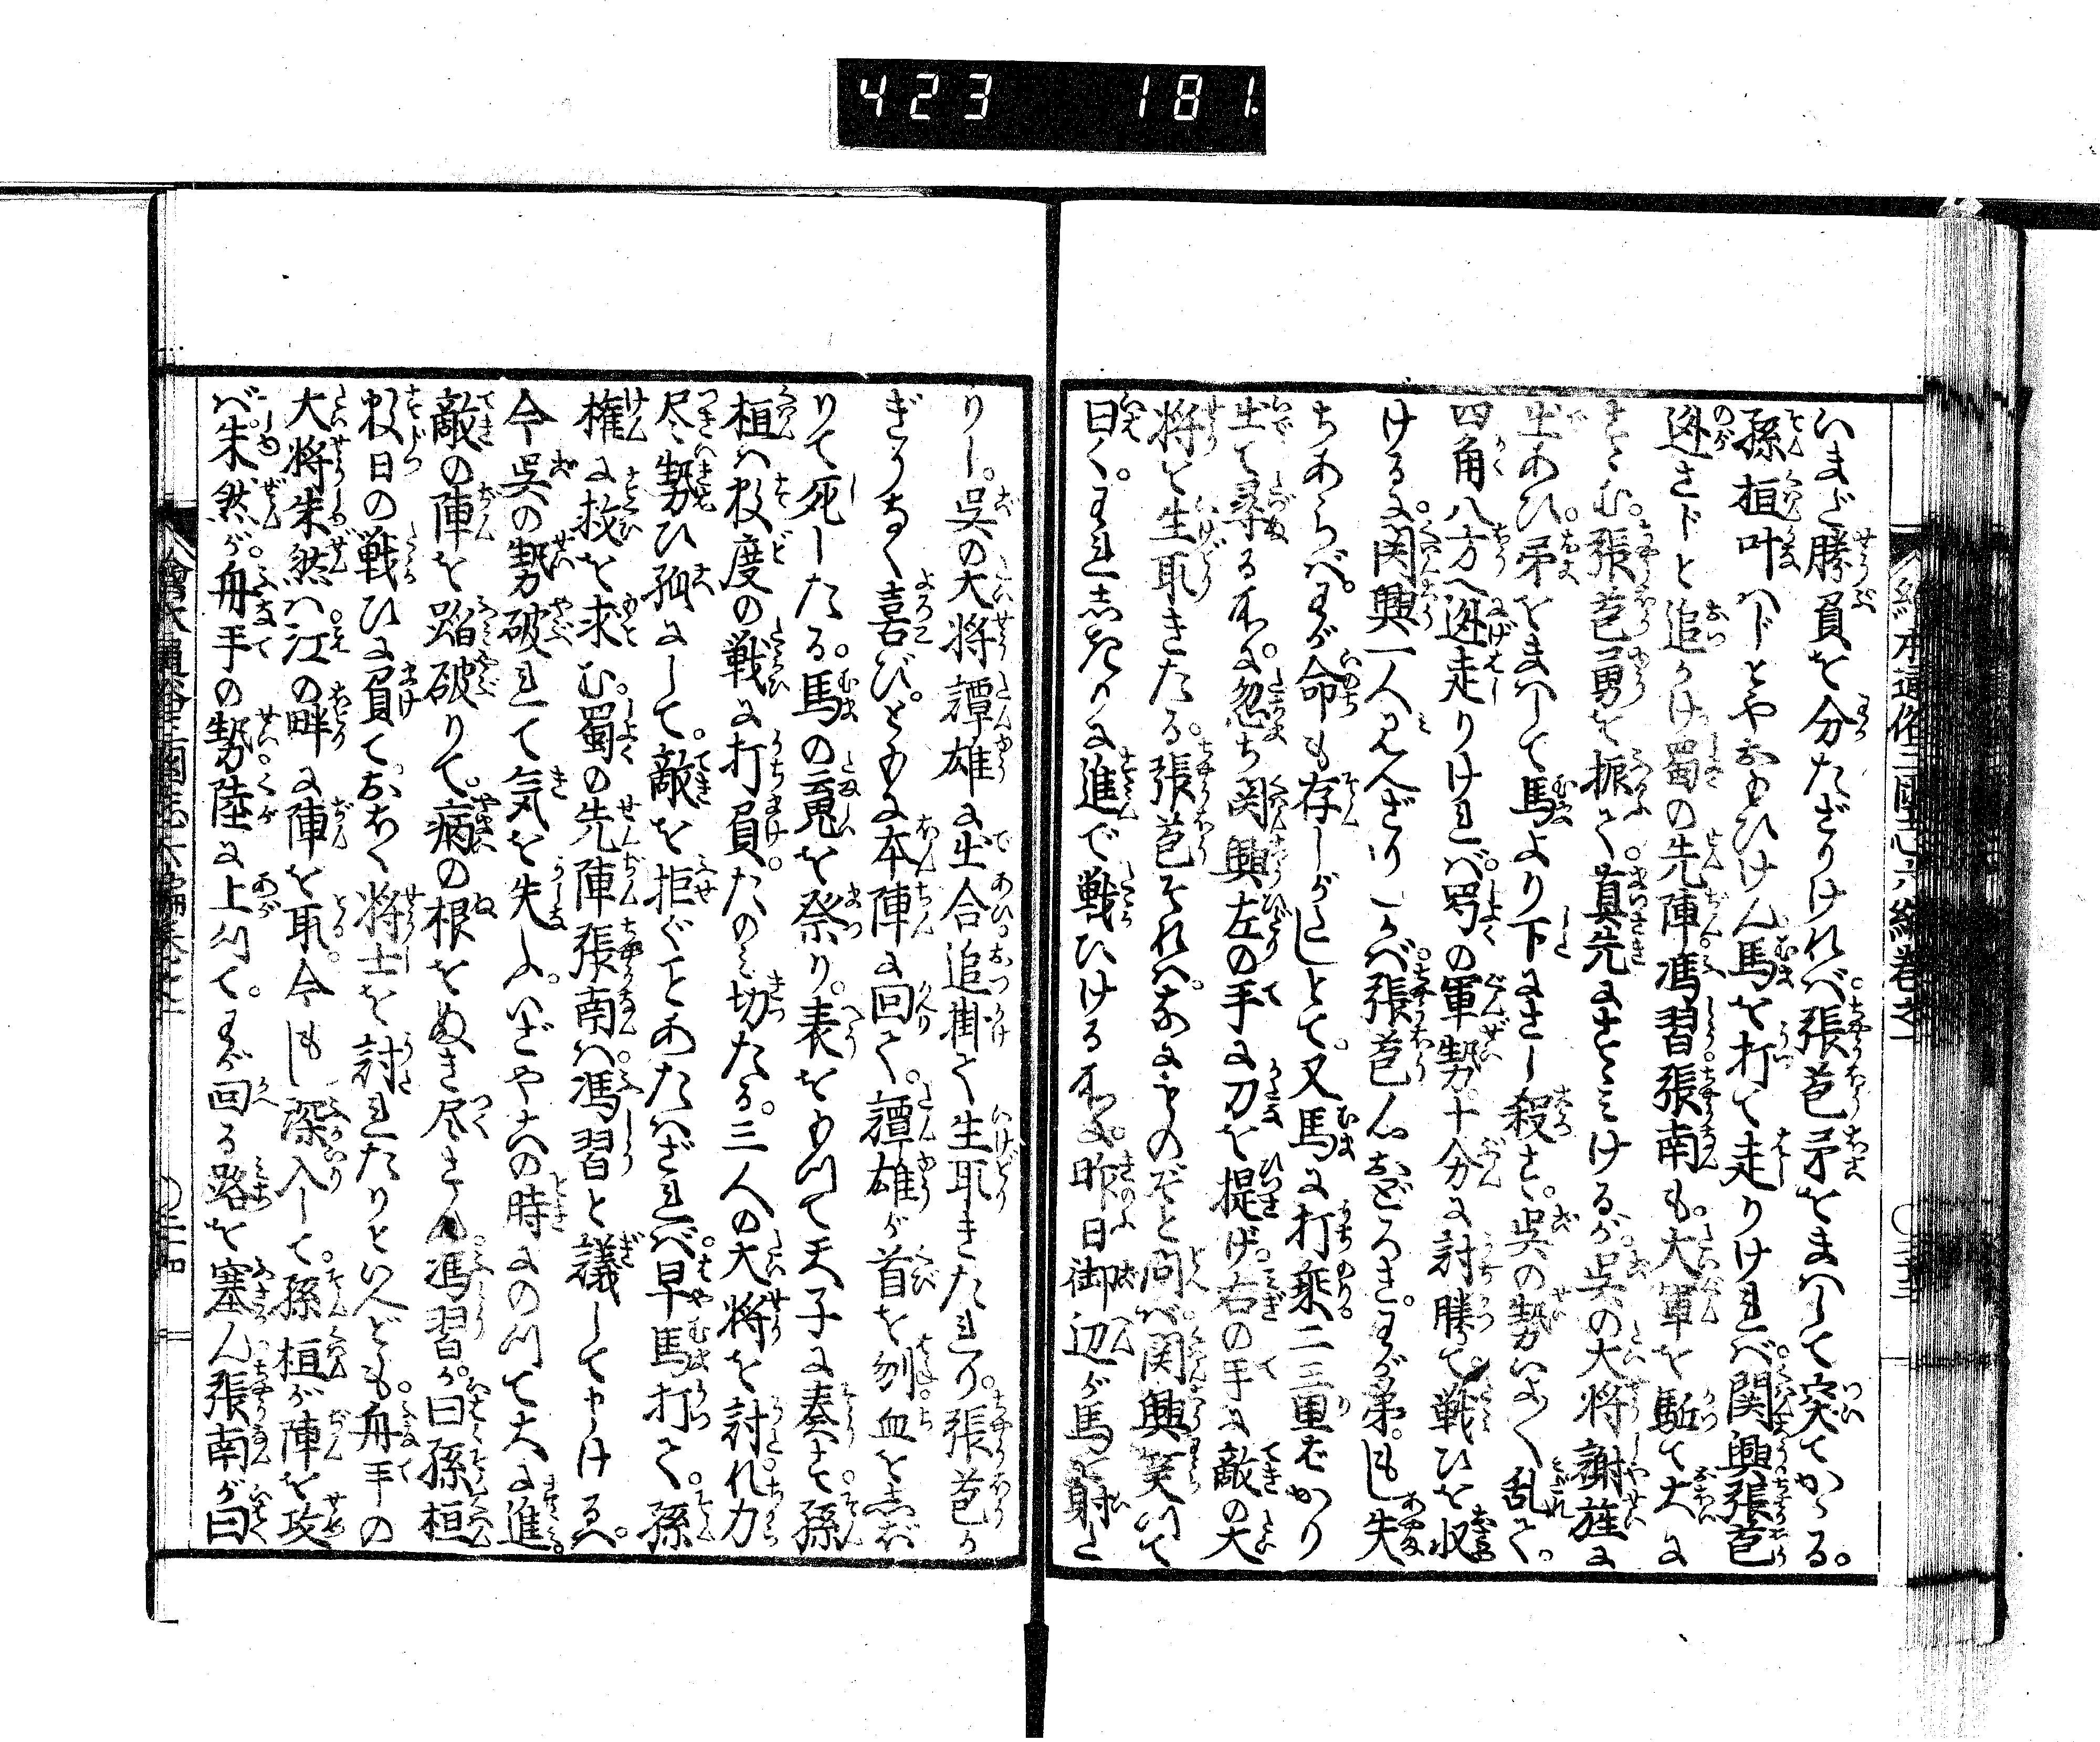 423 181
繪本通俗三國志六編卷之一
いまだ勝負を分たざりければ。張苞矛をまハして突てかゝる。
孫桓叶ハドとやおもひけん馬を打て走りければ。関興張苞
逃さドと追うけ蜀の先陣馮習。張南も。大軍を駈て大に
すゝむ。張苞勇を振て。真先にすゝみけるが。呉の大将謝旌に
出あひ。矛をまハして馬より下にさし殺す。呉の勢いよ〱乱て。
四角八方へ迯走りければ。蜀の軍勢十分に討勝て。戦ひを収
けるに。関興一人見へざりしかバ。張苞心おどろき。わが弟。もし失
ちあらバ。わが命も存しがたしとて。又馬に打乗二三里ばかり
出て尋る所に。忽ち関興左の手に刀を提げ。右の手に敵の大
将を生取きたる。張苞それハ。なにものぞと問バ。関興笑つて
曰く。われしきりに進で戦ひける所に。昨日御辺が馬を射た
りし。呉の大将譚雄に出合。追掛て生取きたれり。張苞か
ぎりなく喜び。ともに本陣に回て。譚雄が首を刎。血をしぼ
りて死したる。馬の䰟を祭り。表をもつて天子に奏す。孫
桓ハ数度の戦に打負。たのミ切たる。三人の大将を討れ力
尽。勢ひ孤にして。敵を拒ぐことあたハざれバ。早馬打て。孫
権に救を求む。蜀の先陣張南ハ。馮習と議して申けるハ。
今呉の勢破れて気を失ふ。いざや此時にのつて大に進。
敵の陣を蹈破りて。病の根をぬき尽さん。馮習が曰孫桓
数日の戦ひに負て。おほく将士を討れたりといへども。舟手の
大将朱然ハ。江の畔に陣を取。今もし深入して。孫桓が陣を攻
バ。朱然が。舟手の勢。陸に上つて。わが回る路を塞ん。張南が曰